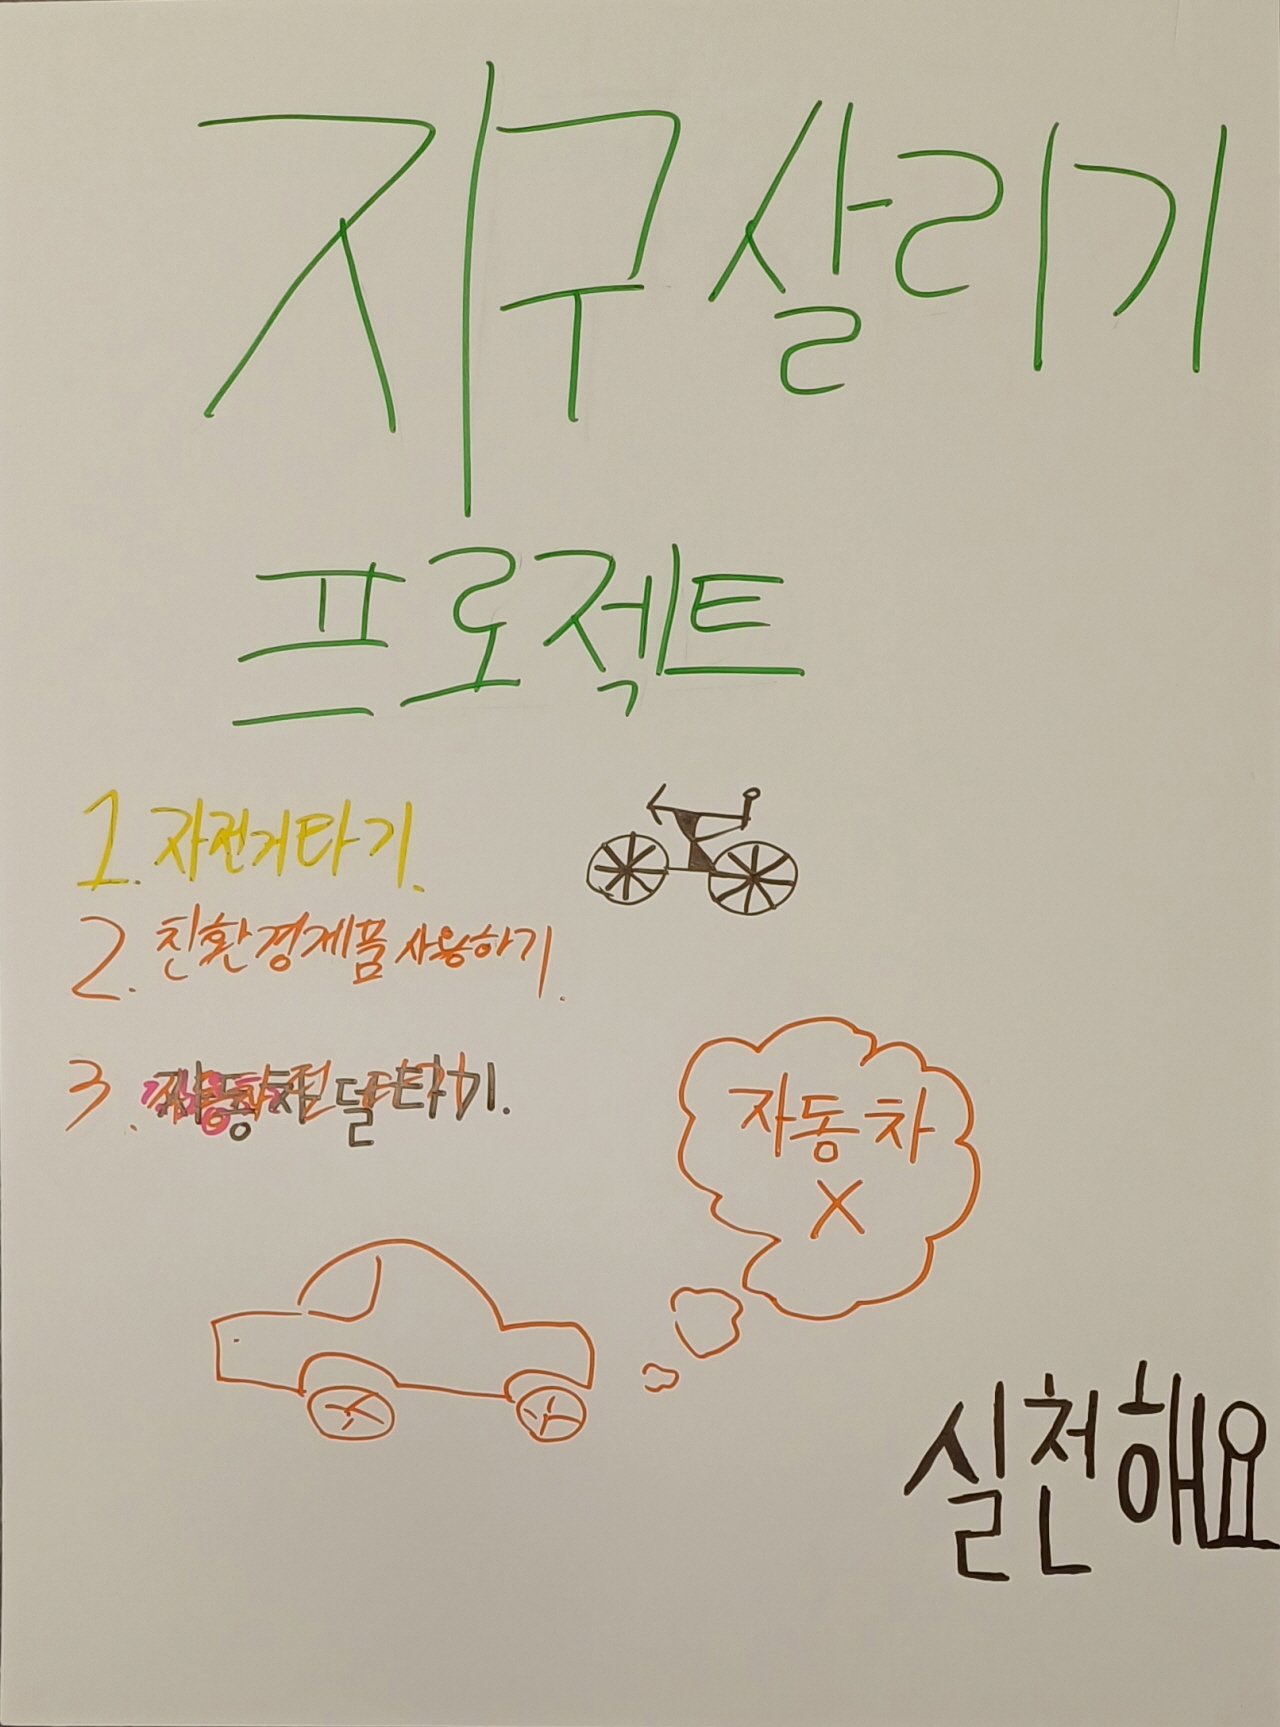 지구살리기
프로젝트
1. 자전거타기.
2. 친환경제품사용하기.
3. 덜타기.
자동차
X
실천해요